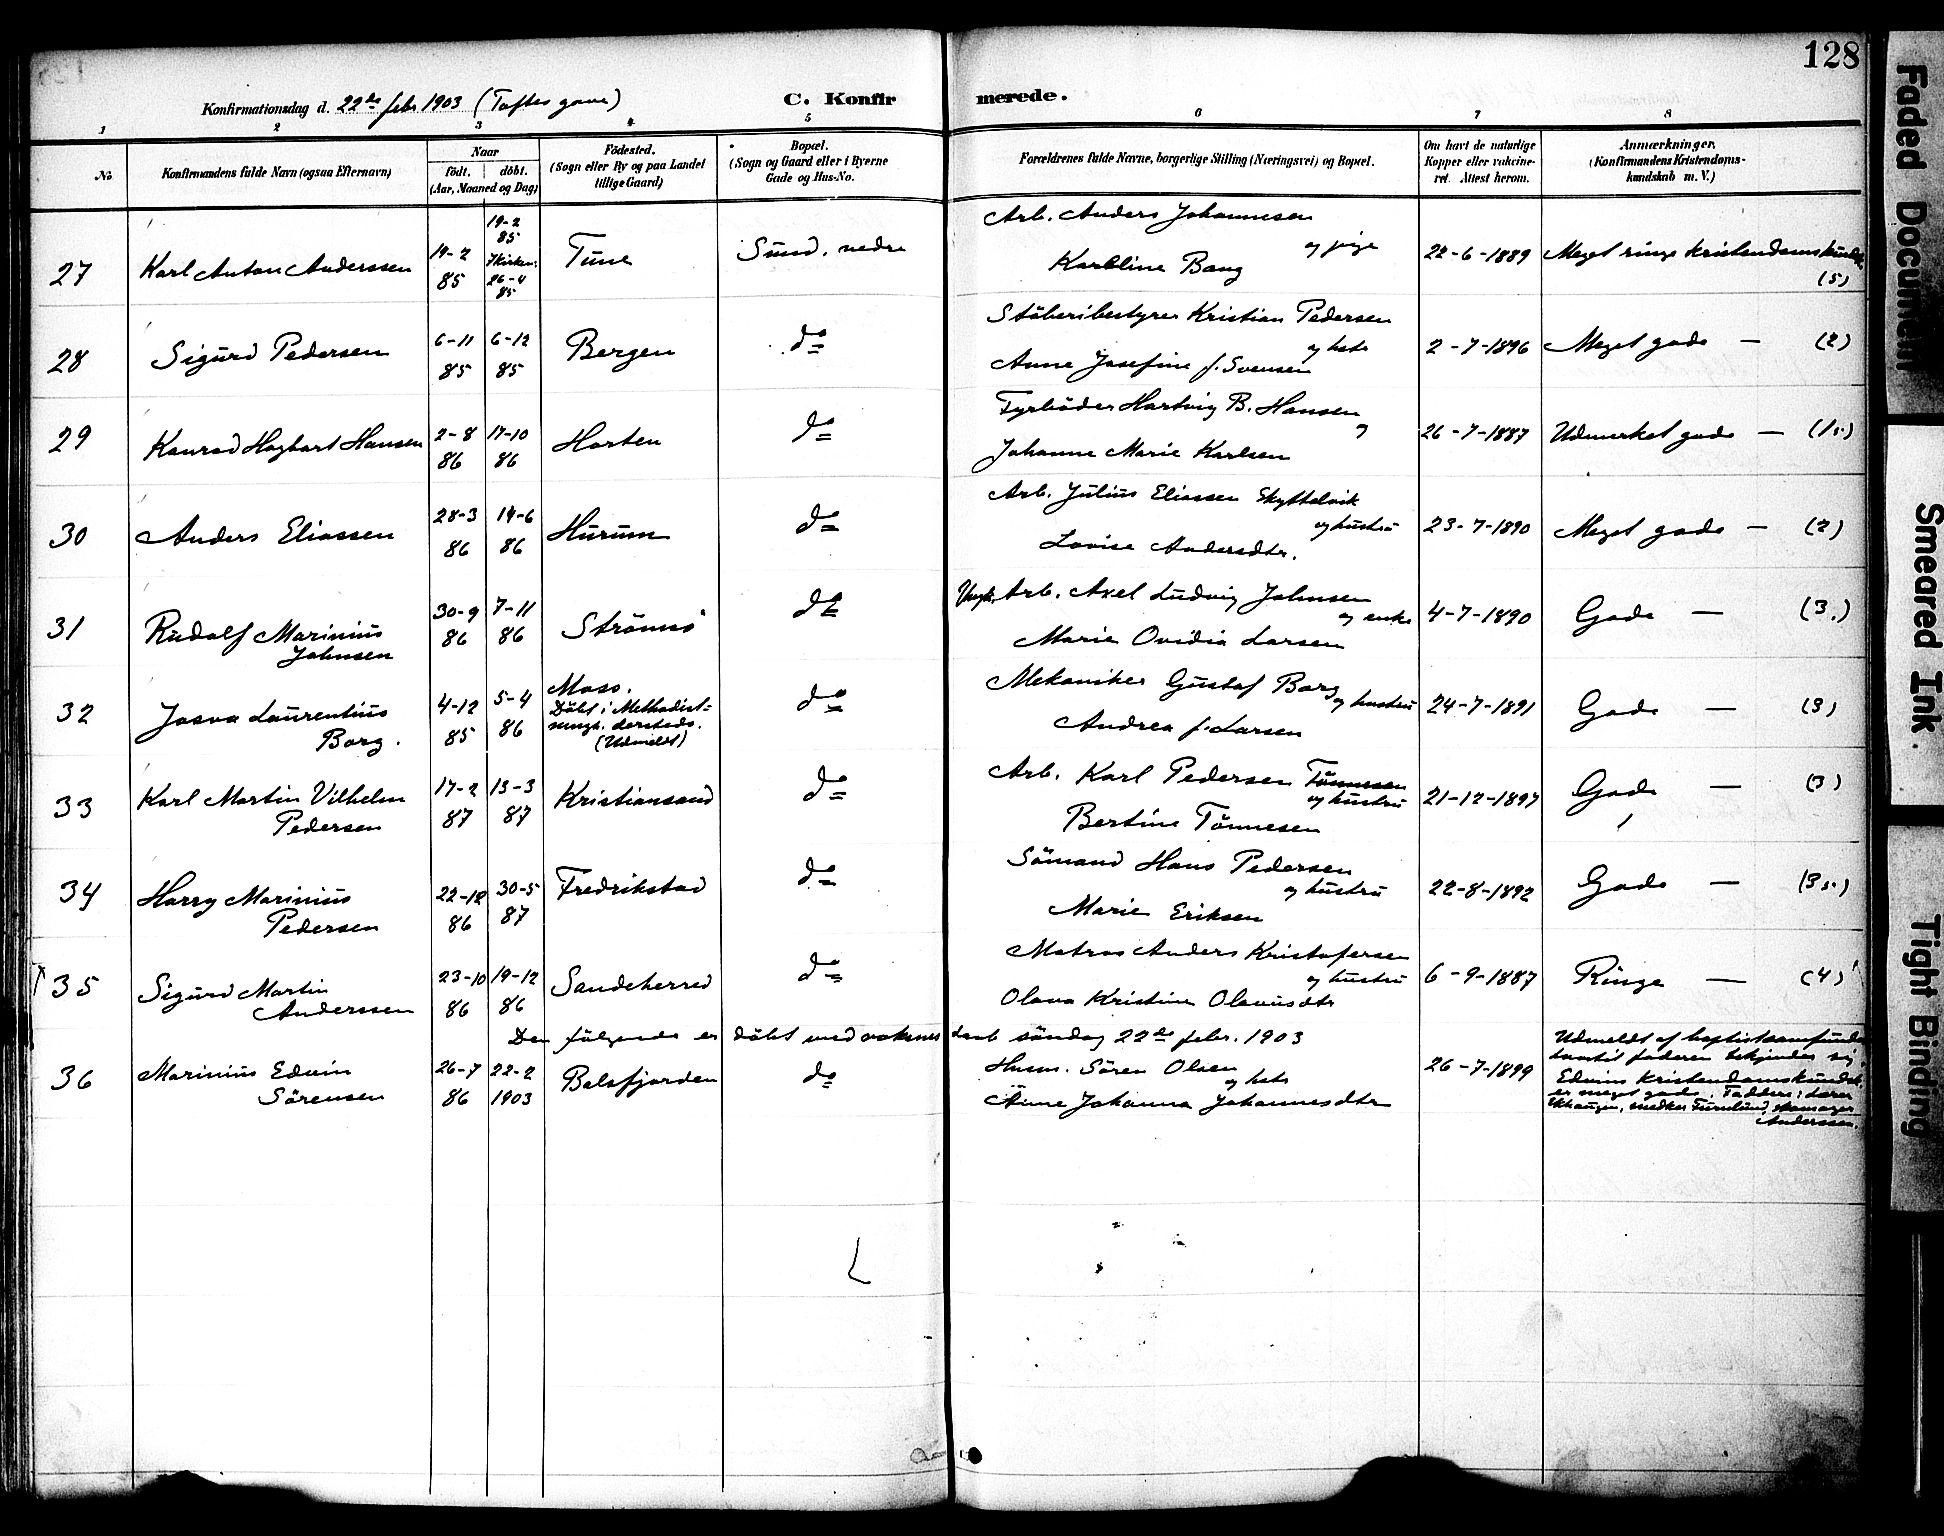 128
Konfirmationsdag d. 22de febr. 1903 (Toftes gave)
C. Konfirmerede.
1 2 3 4 5 6 7 8
No
Konfirmandens fulde Navn (ogsaa Efternavn)
Naar
født. døbt.
(Aar, Maaned og Dag)
Fødested.
(Sogn eller By og paa Landet
tillige Gaard)
Bopæl.
(Sogn og Gaard eller i Byerne
Gade og Hus-No.
Forældrenes fulde Navne, borgerlige Stilling (Næringsvei) og Bopæl.
Om havt de naturlige
Kopper eller vakcine-
ret. Attest herom.
Anmærkninger,
(Konfirmandens Kristendoms-
kundskab m. V.)
27 Karl Anton Anderssen
19-2 85
19-2 85
I kirken:
26-4 85
Tune
Sund, nedre
Arb. Anders Johannesen
og pige
Karoline Bang
22-6-1889
Meget ringe kristendomskundsk.
(5)
28 Sigurd Pedersen
6-11 85
6-12 85
Bergen
do
Støberibestyrer Kristian Pedersen
og hstr
Anne Josefine f. Svensen
2-7-1896
Meget gode — (2)
29 Konrad Hagbart Hansen
2-8 86
17-10 86
Horten
do
Fyrbøder Hartvig B. Hansen
og
Johanne Marie Karlsen
26-7-1887
Udmerket gode — (1.5.)
30 Anders Eliassen
28-3 86
14-6 86
Hurum
do
Arb. Julius Eliassen Skyttelvik
og hustru
Lovise Andersdtr.
23-7-1890
Meget gode — (2)
31 Rudolf Marinius
Johnsen
30-9 86
7-11 86
Strømsø
do
Arb. Axel Ludvig Johnsen
og enke
Marie Ovidia Larsen
4-7-1890
Gode — (3.)
32 Josva Laurentius
Borg.
4-12 85
5-4 86
Moss.
Døbt i Methodist-
mngh. dersteds.
(Udmeldt)
do
Mekaniker Gustaf Borg
og hustru
Andrea f. Larsen
24-7-1891
Gode — (3)
33 Karl Martin Vilhelm
Pedersen
17-2 87
13-3 87
Kristiansand
do
Arb. Karl Pedersen Tønnesen
og hustru
Bertine Tønnesen
21-12-1897
Gode — (3)
34 Harry Marinius
Pedersen
22-12 86
30-5 87
Fredrikstad
do
Sømand Hans Pedersen
og hustru
Marie Eriksen
22-8-1892
Gode — (3.5.)
35 Sigurd Martin
Anderssen
23-10 86
19-12 86
Sandeherred
do
Matros Anders Kristofersen
og hustru
Olava Kristine Olavusdtr
6-9-1887
Ringe — (4)
Den følgende er døbt med voksnes daab søndag 22de febr. 1903
36 Marinius Edvin
Sørensen
26-7 86
22-2 1903
Balsfjorden
do
Husm. Søren Olsen
og hstr
Anne Johanna Johannesdtr
26-7-1899
Udmeldt af baptistsamfundet
hvortil faderen bekjender sig.
Edvins kristendomskundsk.
er meget gode. Faddere: Lærer
Ekhaugen, snedker Furulund, skomager
Anderssen.
Faded Document
Smeared Ink.
Tight Binding